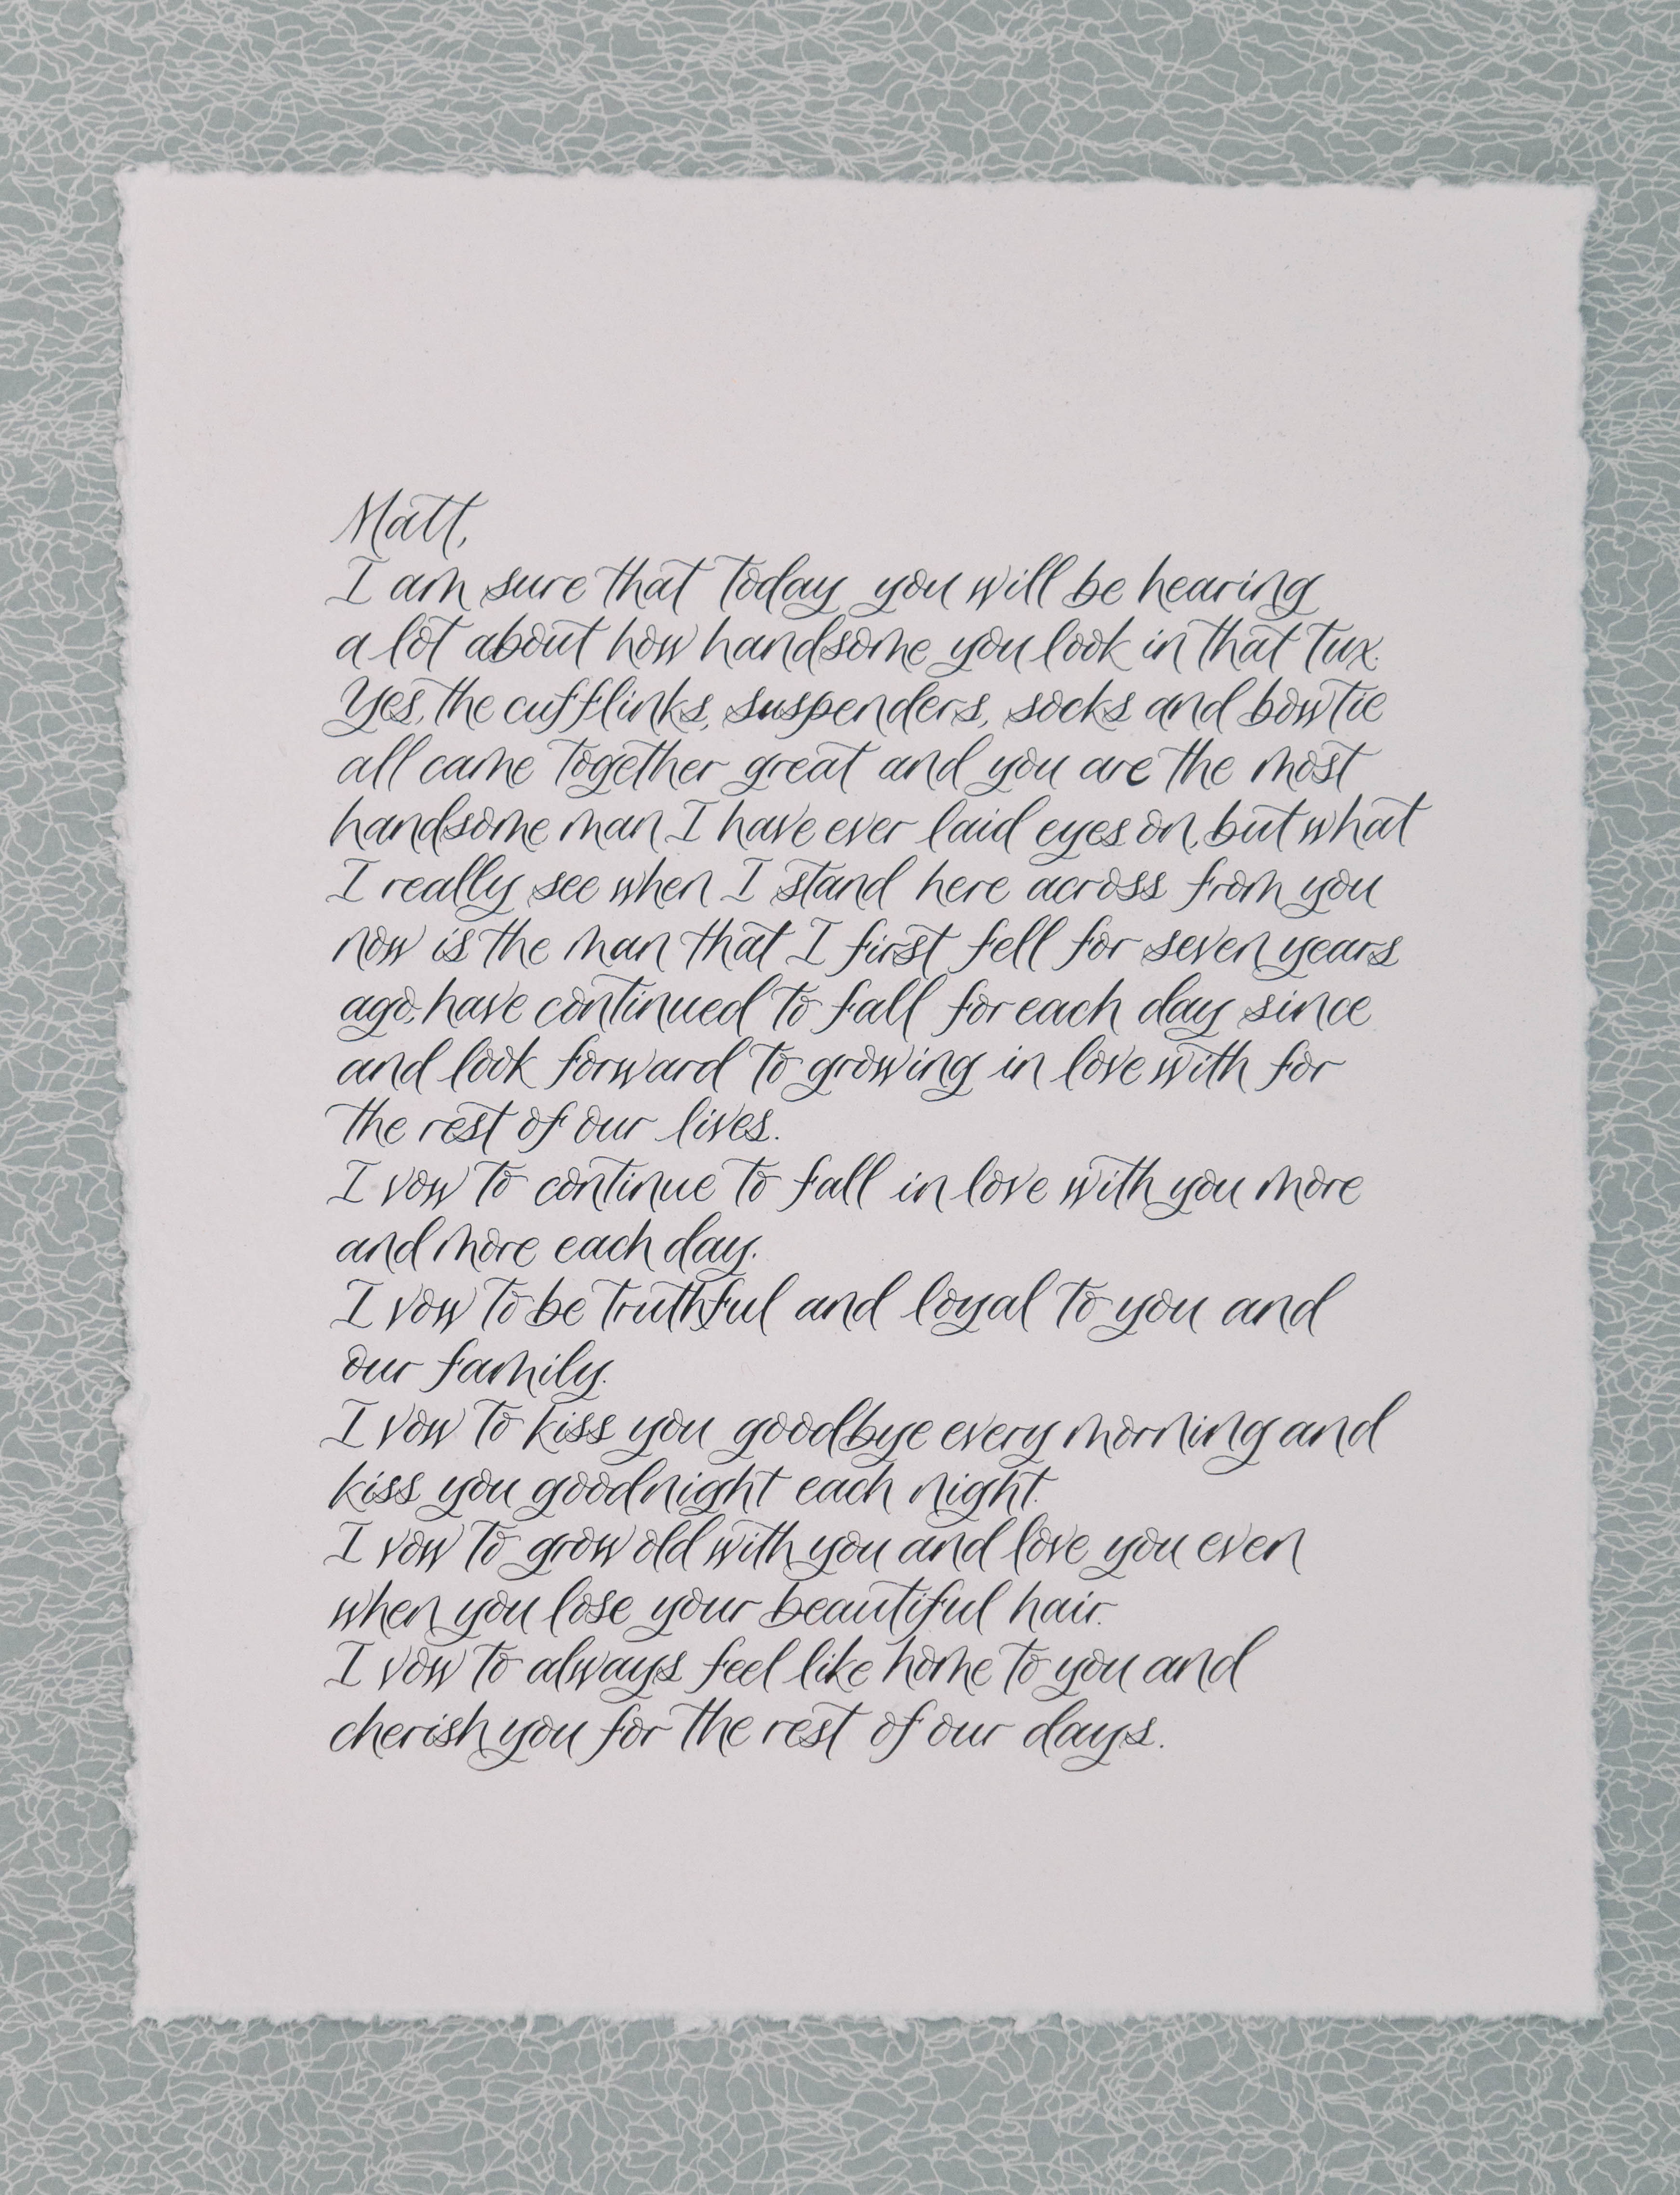 Matt,
I am sure that today you will be hearing
a lot about how handsome you look in that tux.
Yes, the cufflinks, suspenders, socks and bowtie
all came together great and you are the most
handsome man I have ever laid eyes on, but what
I really see when I stand here across from you
now is the man that I first fell for seven years
ago, have continued to fall for each day since
and look forward to growing in love with for
the rest of our lives.
I vow to continue to fall in love with you more
and more each day.
I vow to be truthful and loyal to you and
our family.
I vow to kiss you goodbye every morning and
kiss you goodnight each night.
I vow to grow old with you and love you even
when you lose your beautiful hair.
I vow to always feel like home to you and
cherish you for the rest of our days.